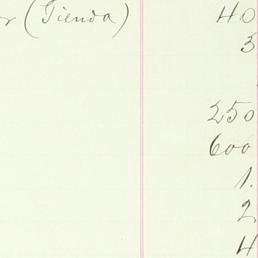 (Tienda) 40
3
250
600
1.
2
4